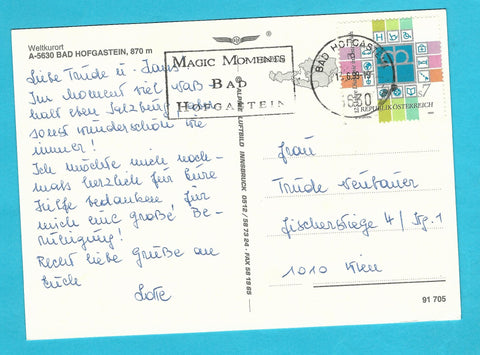 Weltkurort
A-5630 BAD HOFGASTEIN, 870 m
Liebe Trude u. Hans
Im Moment viel naß -
halt eben Salzburg aber
sonst wunderschön wie
immer!
Ich möchte mich noch-
mals herzlich für Eure
Hilfe bedanken, für
mich eine große Be-
ruhigung!
Recht liebe Grüße an
Euch
Lotte
MAGIC MOMENTS
BAD
HOFGASTEIN
BAD HOFGASTEIN
5630
7
REPUBLIK ÖSTERREICH
LUFTBILD INNSBRUCK 0512 / 58 73 24 - FAX 58 19 85
Frau
Trude Neubauer
Fischerstiege 4/
1010 Wien
91 705